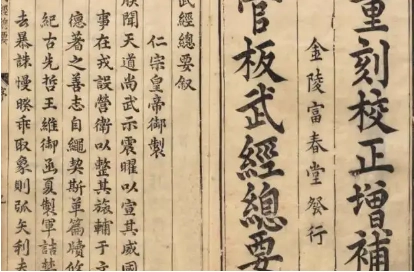 重刻校正增補
官板武經總要
金陵富春堂發行
武經總要叙
仁宗皇帝御製
朕聞天道尚武示震曜以宣其威國
事在戎設營衛以整其旅輔于文
德著之善志自繩契斯革篇牘攸
紀古先哲王維御函夏製軍詰禁
去暴誅慢暌乖取象則弧矢利夫